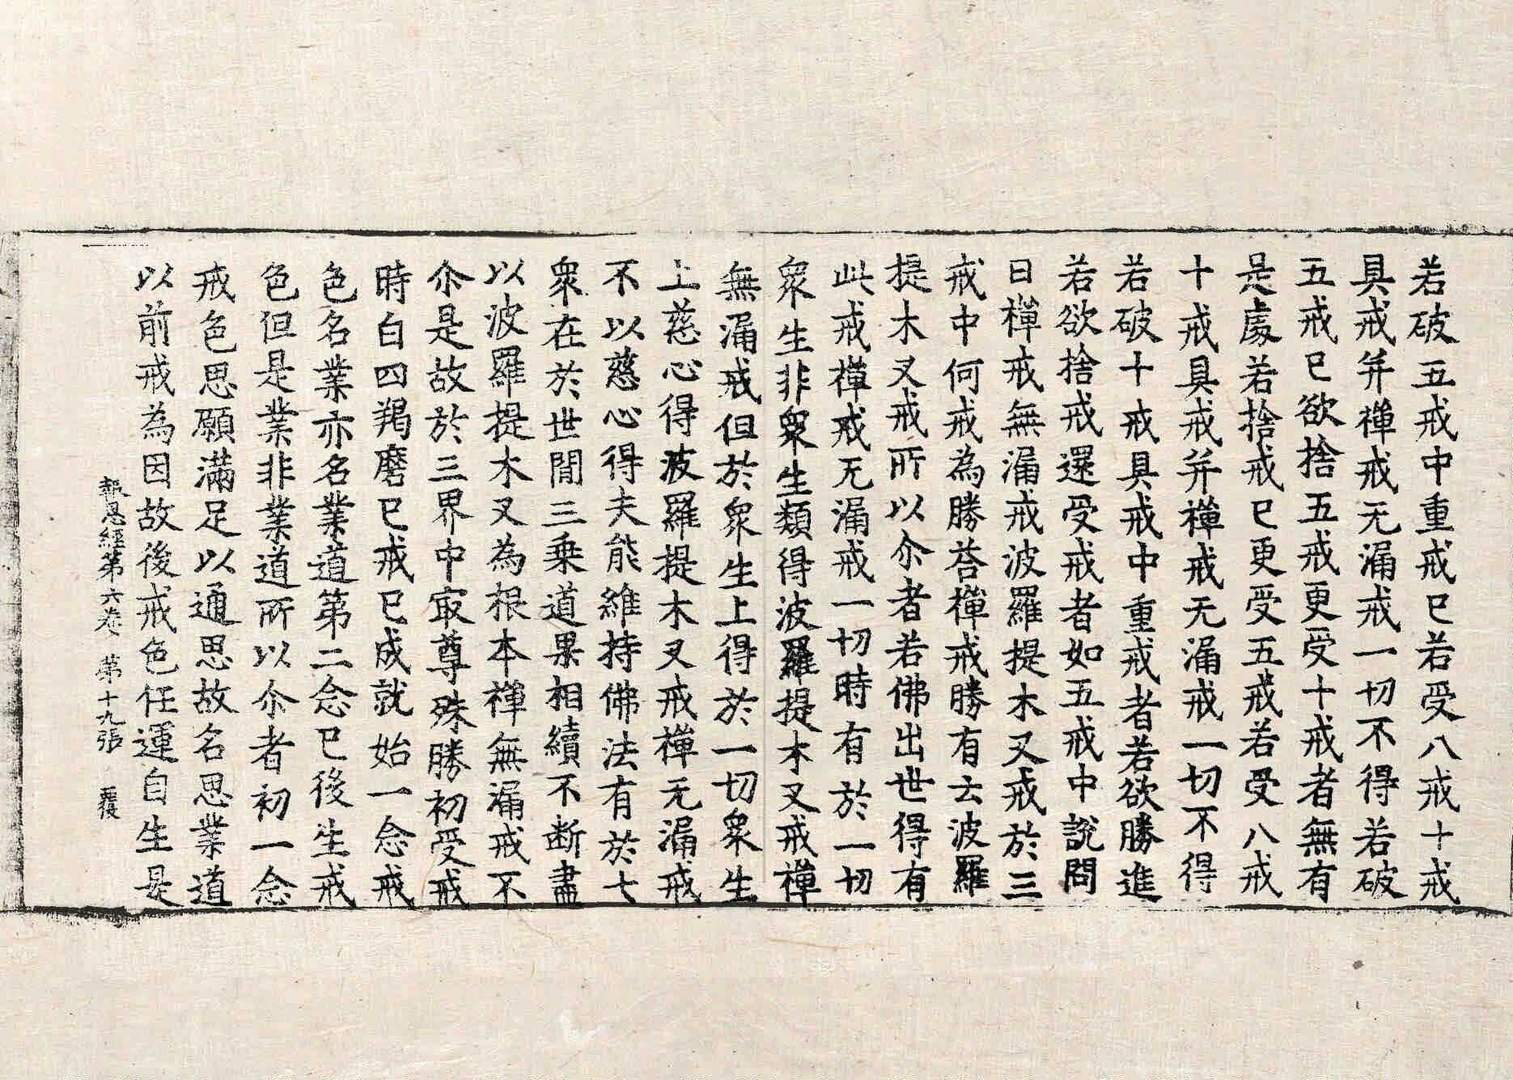 若破五戒中重戒已若受八戒十戒
具戒并禪戒无漏戒一切不得若破
五戒已欲捨五戒更受十戒者無有
是處若捨戒已更受五戒若受八戒
十戒具戒并禪戒无漏戒一切不得
若破十戒具戒中重戒者若欲勝進
若欲捨戒還受戒者如五戒中說問
曰禪戒無漏戒波羅提木叉戒於三
戒中何戒為勝荅禪戒勝有云波羅
提木叉戒所以尒者若佛出世得有
此戒禪戒无漏戒一切時有於一切
衆生非衆生類得波羅提木叉戒禪
無漏戒但於衆生上得於一切衆生
上慈心得波羅提木叉戒禪无漏戒
不以慈心得夫能維持佛法有於七
衆在於世間三乗道果相續不断盡
以波羅提木叉為根本禪無漏戒不
尒是故於三界中㝡尊殊勝初受戒
時白四羯磨已戒已成就始一念戒
色名業亦名業道第二念已後生戒
色但是業非業道所以尒者初一念
戒色思願滿足以通思故名思業道
以前戒為因故後戒色任運自生是
報恩經第六卷 第十九張 覆